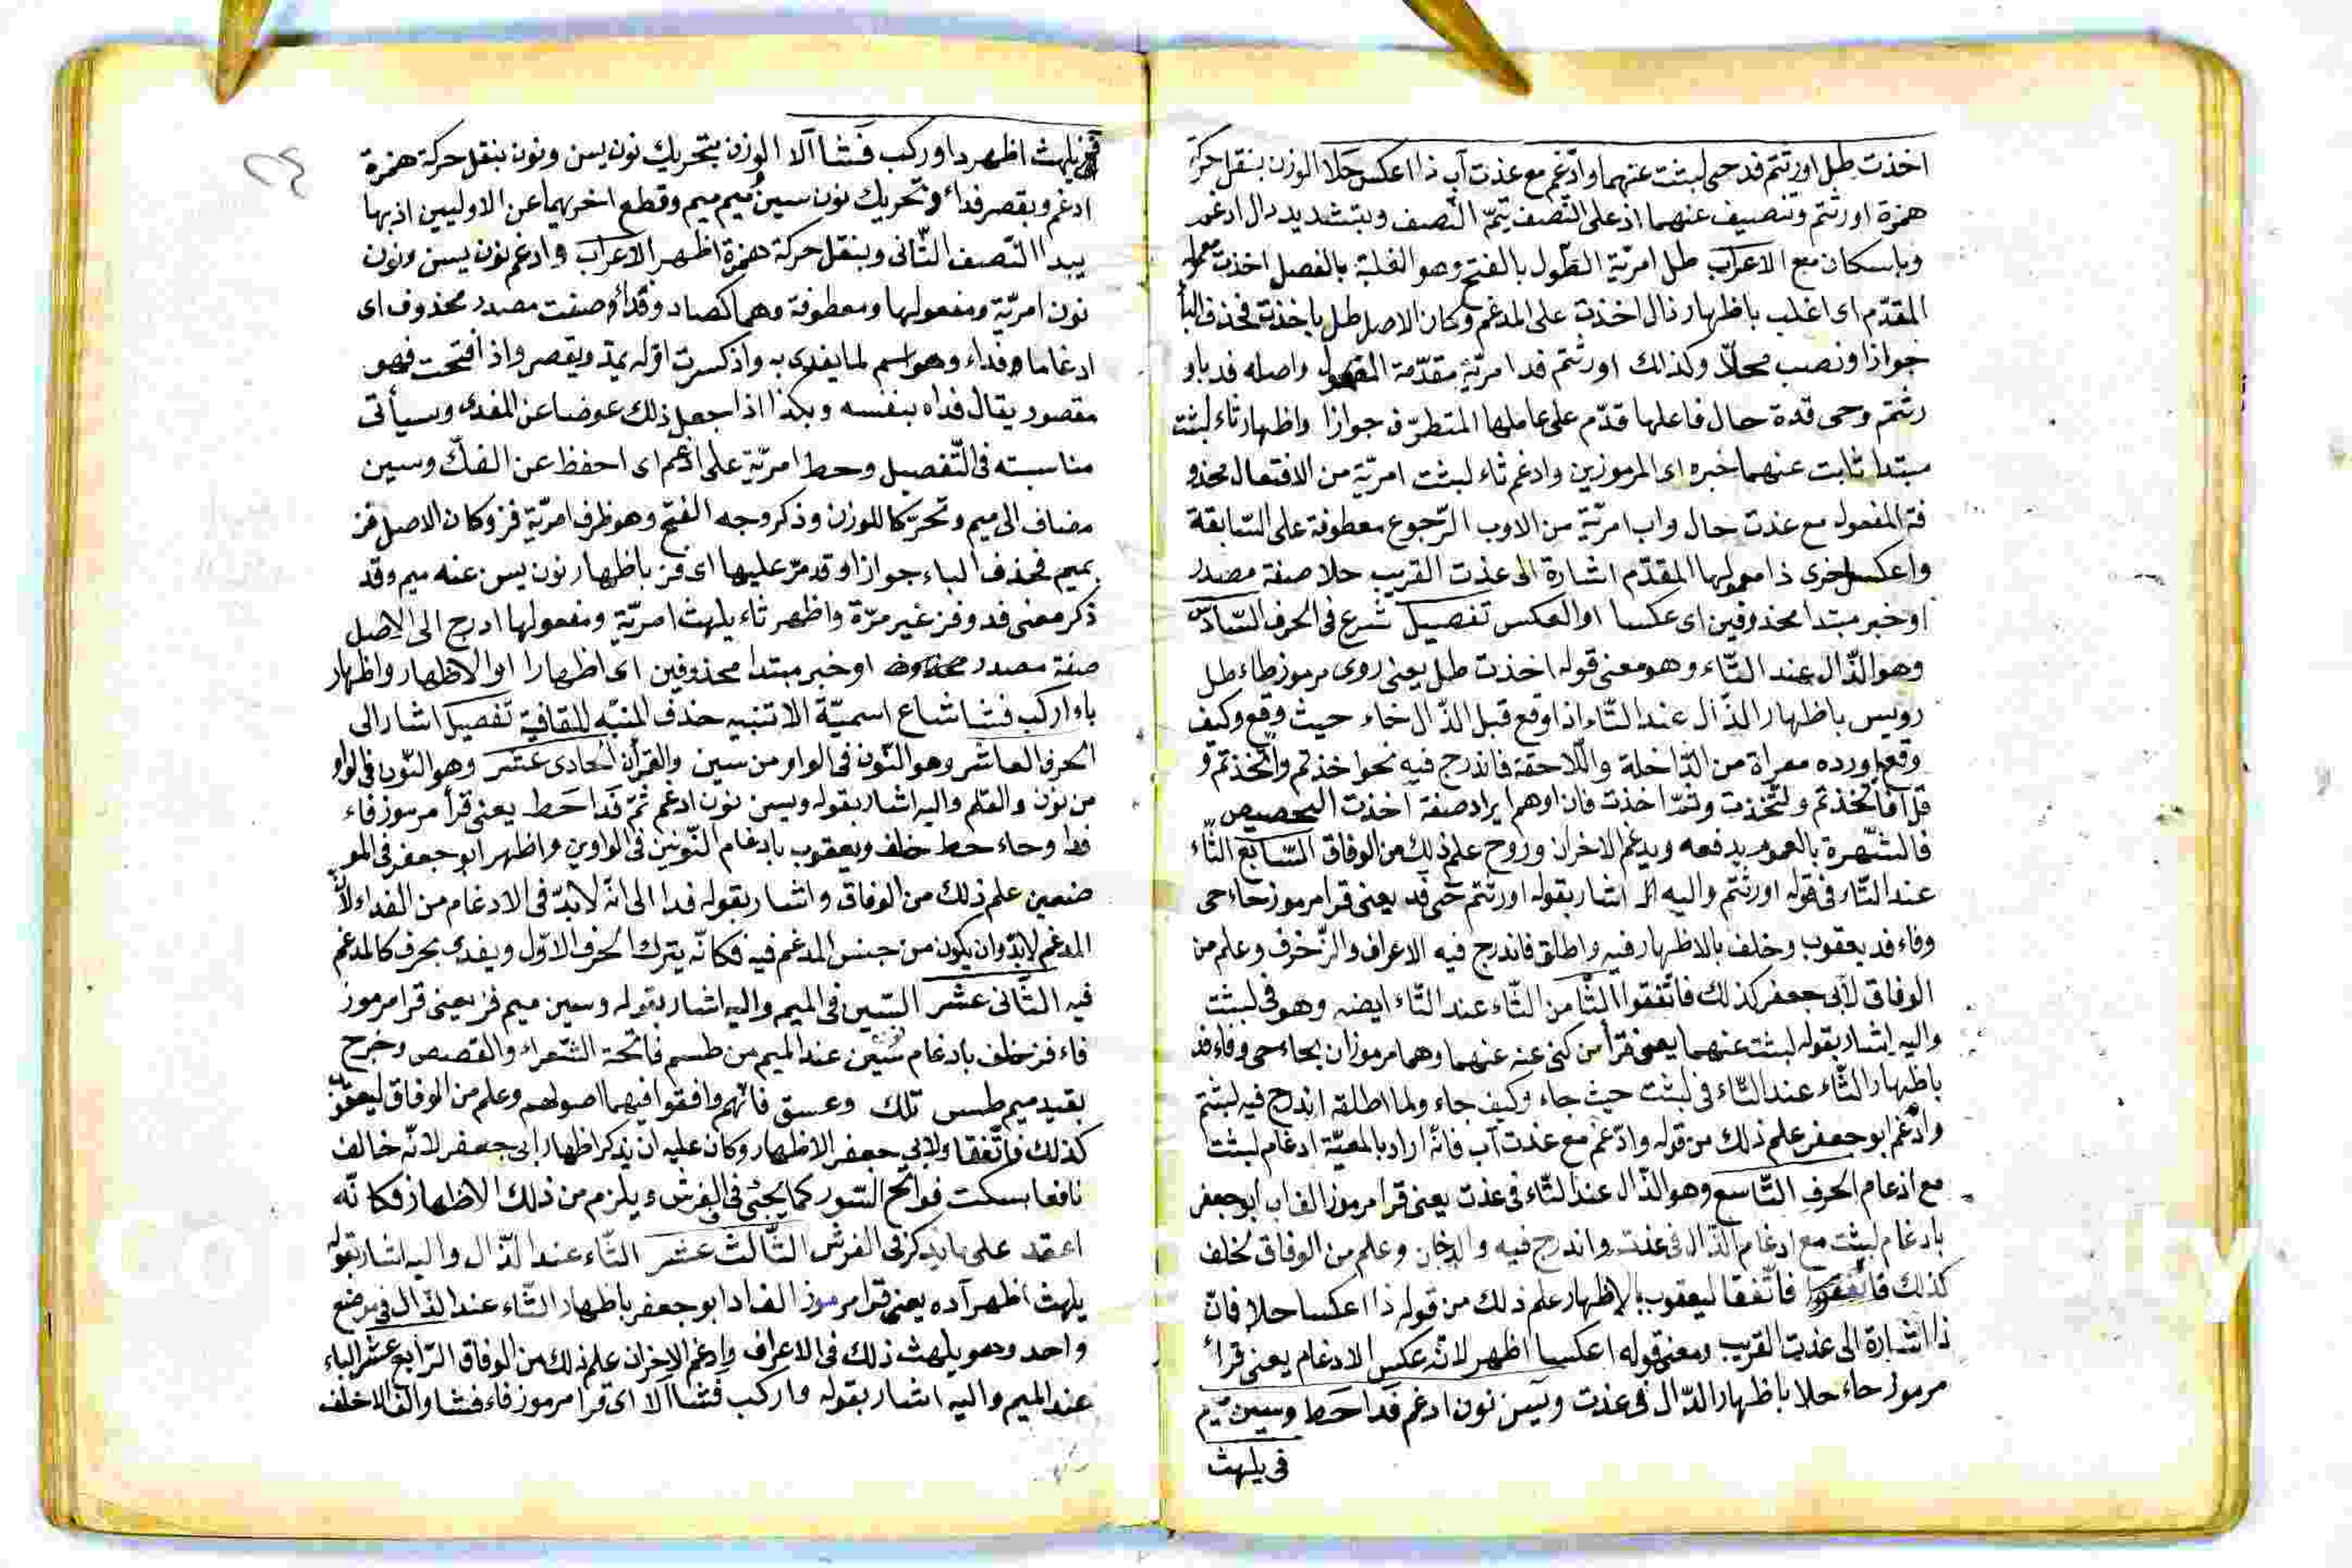 اخذت طل اورثتم فد حمى لبثت عنهما وادّغم مع عذت آب ذا اعكس حلا الوزن بنقل حركة
همزة اورثتم وتنصيف عنهما اذ على النّصف يتمّ النّصف وبتشديد دال ادغم
وباسكان مع الاعراب طل امريّة الطّول بالفتح وهو الغلبة بالفصل اخذت
المقدّم اى اغلب باظهار ذال اخذت على المدغم وكان الاصل طل باخذت فحذف البأ
جوازا ونصب محلّا وكذلك اورثتم فد امريّة مقدّمة المفعول واصله فد باو
رثتم وحمى قدة حال فاعلها قدّم على عاملها المتطرّف جوازا واظهار ثاء لبثت
مبتدا ثابت عنهما خبره اى المرموزين وادغم ثاء لبثت امريّة من الافتعال محذو
فة المفعول مع عذت حال واب امريّة من الاوب الرّجوع معطوفة على السّابقة
واعكس اخرى ذا معمولها المقدّم اشارة الى عذت القريب حلا صفة مصدر
او خبر مبتدا محذوفين اى عكسا او العكس تفصيل شرع فى الحرف السّادس
وهو الذّال عند التّاء وهو معنى قوله اخذت طل يعنى روى مرموز طاء طل
رويس باظهار الذّال عند التّاء اذا وقع قبل الذّال خاء حيث وقع وكيف
وقع اورده معراة من الدّاخلة واللّاحقة فاندرج فيه نحو اخذتم واتّخذتم و
قل افاتّخذتم ولتّخذت وثمّ اخذت فان اوهم ايراد صفة اخذت التّخصيص
فالشّهرة بالعموم يدفعه ويدغم الاخران وروح علم ذلك من الوفاق السّابع الثّاء
عند التّاء فى قوله اورثتم واليه اشار بقوله اورثتم حمى فد يعنى قرا مرموز حاء حمى
وفاء فد يعقوب وخلف بالاظهار فيه واطلق فاندرج فيه الاعراف والزّخرف وعلم من
الوفاق لابى جعفر كذلك فاتّفقوا الثّامن الثّاء عند التّاء ايضه وهو فى لبثت
واليه اشار بقوله لبثت عنهما يعنى قرأ من كنى عنه عنهما وهما مرموزان بحاء حمى وفاء فد
باظهار الثّاء عند التّاء فى لبثت حيث جاء وكيف جاء ولما اطلقه اندرج فيه لبثتم
وادّغم ابو جعفر علم ذلك من قوله وادّغم مع عذت آب فانّه اراد بالمعيّة ادغام لبثت
مع ادغام الحرف التّاسع وهو الذّال عند التّاء فى عذت يعنى قرا مرموز الف اب ابو جعفر
بادغام لبثت مع ادغام الذّال فى عذت واندرج فيه والدخان وعلم من الوفاق لخلف
كذلك فاتّفقا ليعقوب بالاظهار علم ذلك من قوله ذا اعكسا حلا فانّ
ذا اشارة الى عذت القريب ومعنى قوله اعكسا اظهر لانّه عكس الادغام يعنى قرأ
مرموز حاء حلا باظهار الذّال فى عذت ويسن نون ادغم فدا حط وسين ميم
فى يلهث
فز يلهث اظهر دا وركب فشا آلا الوزن بتحريك نون يسن ونون بنقل حركة همزة
ادغم وبقصر فداء وتحريك نون سين ميم ميم وقطع اخريهما عن الاوليين اذ بها
يبدا النّصف الثّانى وبنقل حركة همزة اظهر الاعراب وادغم نون يسن ونون
نون امريّة ومفعولها ومعطوفة وهما كصاد وفداء وصفت مصدر محذوف اى
ادغاما وفداء وهو اسم لما يفدى به واذ كسرت اوّله يمدّ ويقصر واذ افتحت فهو
مقصور يقال فداه بنفسه وبكذا اذا جعل ذلك عوضا عن المفدى وسيأتى
مناسبته فى التّفصيل وحط امريّة على ادغم اى احفظ عن الفكّ وسين
مضاف الى ميم وتحرّكا للوزن وذكر وجه الفتح وهو ظرف امريّة فز وكان الاصل فز
بميم فحذف الباء جوازا وقد مرّ عليها اى فز باظهار نون يسن عنه ميم وقد
ذكر معنى فد وفز غير مرّة واظهر ثاء يلهث امريّة ومفعولها ادرج الى الاصل
صفة مصدر محذوف او خبر مبتدا محذوفين اى اظهارا او الاظهار واظهار
باء اركب فشا شاع اسميّة الا تنبيه حذف المنبّه للقافية تفصيل اشار الى
الحرف العاشر وهو النّون فى الواو من سين والقرأن الحادى عشر وهو النّون فى الواو
من نون والقلم واليه اشار بقوله ويسن نون ادغم ثمّ فدا حط يعنى قرأ مرموز فاء
فدا وحاء حط خلف ويعقوب بادغام النّونين فى الواوين واظهر ابو جعفر فى المو
ضعين علم ذلك من الوفاق واشار بقوله فدا الى انّه لا بدّ فى الادغام من الفداء لانّ
المدغم لا بدّ وان يكون من جنس المدغم فيه فكانّه يترك الحرف الاوّل ويفدى بحرف كالمدغم
فيه الثّانى عشر السّين فى الميم واليه اشار بقوله وسين ميم فز يعنى قرا مرموز
فاء فز خلف بادغام سين عند الميم من طسم فاتحة الشّعراء والقصص وخرج
بقيد ميم طس تلك وعسق فانّهم وافقوا فيهما اصولهم وعلم من الوفاق ليعقوب
كذلك فاتّفقا ولابى جعفر الاظهار وكان عليه ان يذكر اظهار ابى جعفر لانّه خالف
نافعا بسكت فواتح السّور كما يجئى فى الفرش ويلزم من ذلك الاظهار فكانّه
اعتمد على ما يذكر فى الفرش الثّالث عشر الثّاء عند الذّال واليه اشار بقوله
يلهث اظهر آده يعنى قرا مرموز الف ادا ابو جعفر باظهار الثّاء عند الذّال فى موضع
واحد وهو يلهث ذلك فى الاعراف وادغم الاخران علم ذلك من الوفاق الرّابع عشر الباء
عند الميم واليه اشار بقوله واركب فشا آلا اى قرا مرموز فاء فشا والف الا خلف